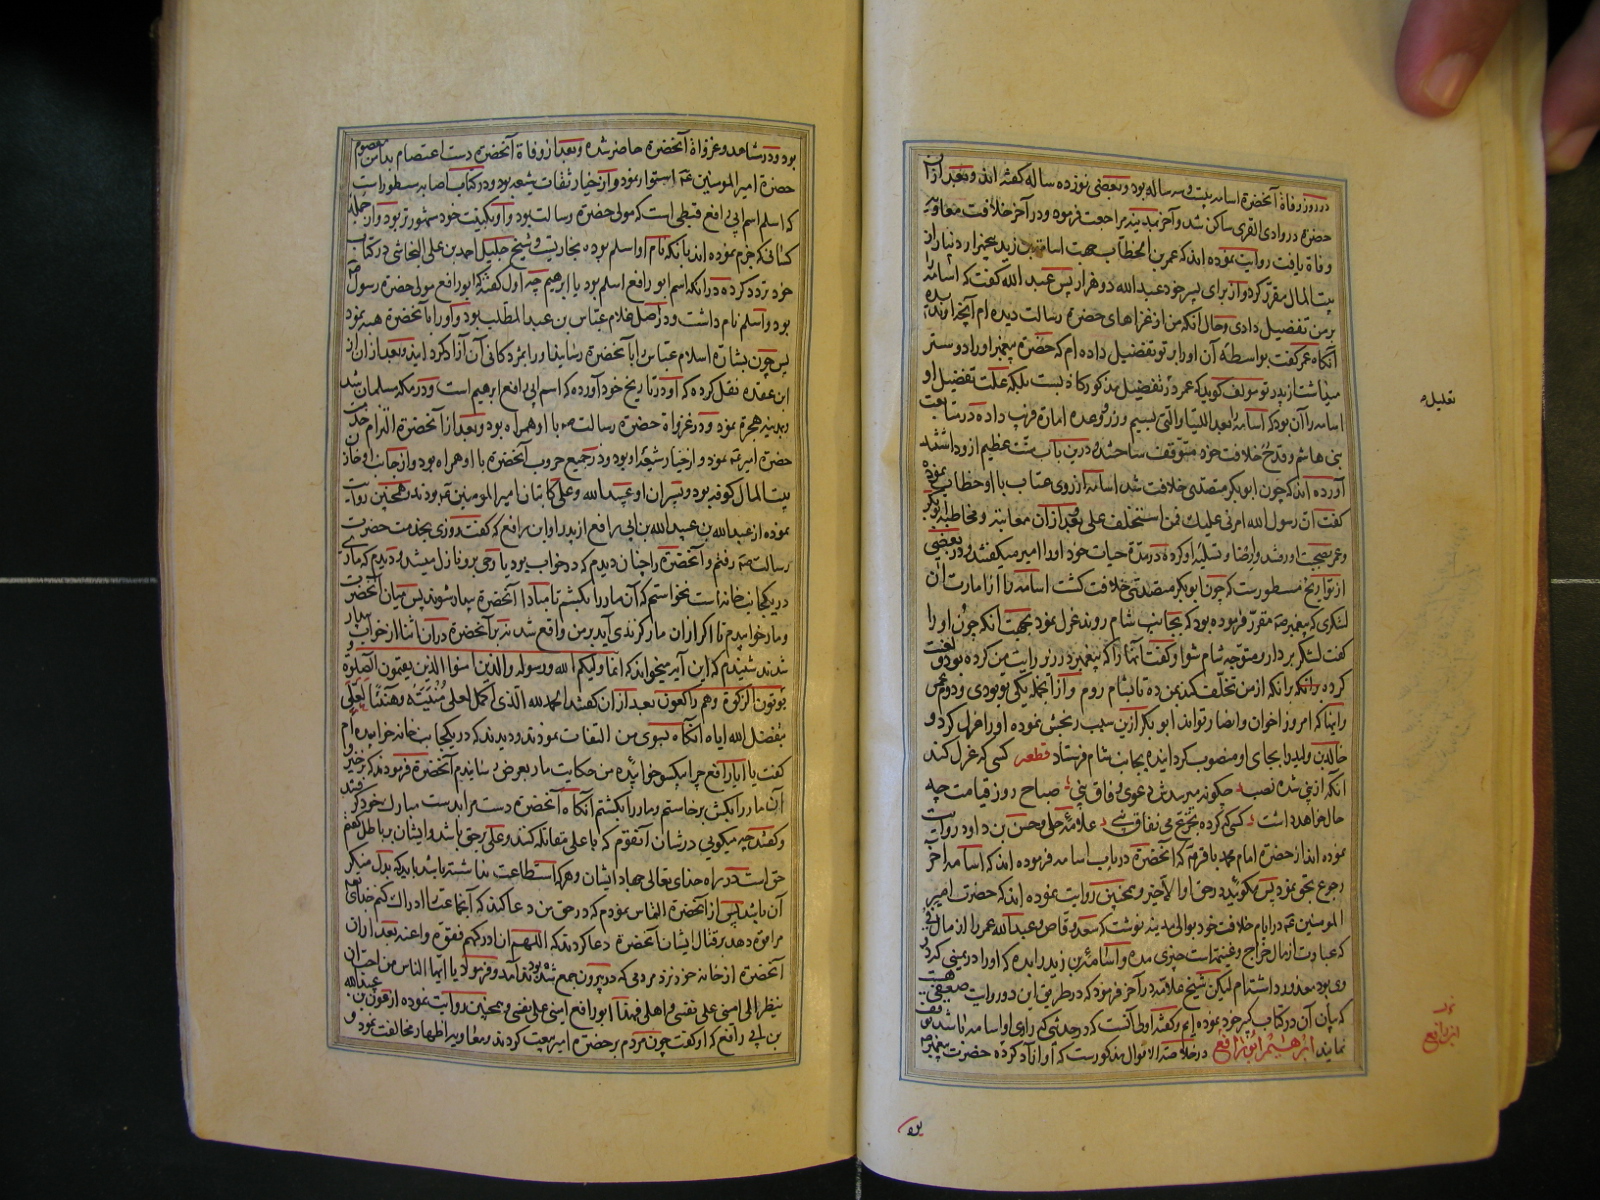 در روز وفاة آنحضرة اسامه بیست و سه ساله بود و بعضی نوزده ساله کفته اند و بعد از آن
حضرة در وادی القری ساکن شد و آخر بمدینه مراجعت فرموده و در آخر خلافت معاویه
وفاة یافت روایت نموده اند که عمر بن الخطاب جهت اسامة بن زید پنجهزار دینار از
بیت المال مقرر کرد و از برای پسر خود عبد الله دو هزار پس عبد الله کفت که اسامه را
بر من تفضیل دادی و حال آنکه من از غزاهای حضرة رسالت دیده ام آنچه او ندیده
آنکاه عمر کفت بواسطه آن او را بر تو تفضیل داده ام که حضرة پیغمبر او را دوستر
میداشت از پدر تو مولف کوید که عمر در تفضیل مذکور کاذبست بلکه علت تفضیل او
اسامه را آن بود که اسامه را بعد اللتیا والتی بسیم و زر و وعده امارة فریب داده در متابعت
بنی هاشم و قدح خلافت خود متوقف ساخته و درین باب منت عظیم ازو داشته
آورده اند که چون ابوبکر متصدی خلافت شد اسامه از روی عتاب با او خطاب نموده
کفت ان رسول الله امرنی علیك فمن استخلفك علی بعد از آن معاینه و مخاطبه ابوبکر
و عمر بصحبت او رفتند و ارضا و تسلیه او کرده در مدة حیات خود او را امیر میکفتند و در بعضی
از تواریخ مسطورست که چون ابوبکر متصدی خلافت کشت اسامه را از امارت آن
لشکری که پیغمبر صه مقرر فرموده بود که بجانب شام روند عزل نمود بجهت آنکه چون او را
کفت لشکر بردار و متوجه شام شو او کفت آنها را که پیغمبر در زیر رایت من کرده بود توقف
کرده بانکه برانکه از من تخلف کنند من ده تا بشام روم و از آنجمله یکی تو بودی و دوم عمر
را بنا که امروز اخوان وانصار تو اند ابو بکر ازین سبب رنجش نموده او را عزل کرد و
خالد بن ولید را بجای او منصوب کردانیده بجانب شام فرستاد قطعه کسی که عزل کند
آنکه از نبی شده نصب چکونه میرسدش دعوی وفاق نبی صباح روز قیامت چه
حال خواهد داشت کسی که کرده تجرع می نفاق نبی علامه حلی و حسن بن داود روایت
نموده اند از حضرة امام محمد باقر ع که آنحضرة در باب اسامه فرموده اند که اسامه آخر
رجوع بحق نمود پس مکوئید در حق او الا خیر و همچنین روایت نموده اند که حضرت امیر
المومنین ع در ایام خلافت خود بوالی مدینه نوشت که سعد وقاص و عبد الله عمر را از مال فی
که عبارت از مال خراج و غنیمة است چیزی مده و اسامة بن زید را بده که او را در یمینی که در
وی بود معذور داشته ام لیکن شیخ علامه در آخر فرمود که در طریق این دو روایت ضعیفی هست
که بیان آن در کتاب کبیر خود نموده ایم و کفته اولی آنست که در حدیثی که راوی او اسامه باشد توقف
نمایند ابرهیم ابو رافع در خلاصة الاقوال مذکورست که او آزاد کرده حضرت پیغمبر صه
ابو رافع
بود
بود و در مشاهد و غزواة آنحضرة حاضر شده و بعد از وفاة آنحضرة دست اعتصام بدامن معصوم
حضرة امیر المومنین ع استوار نمود و از خیار ثقات شیعه بود و در کتاب اصابه مسطورست
که اسلم اسم ابی رافع قبطی است که مولی حضرة رسالت بود و او بکنیت خود مشهورتر بود و از جمله
کسانی که جزم نموده اند بانکه نام او اسلم بوده بخاریست و شیخ جلیل احمد بن علی النجاشی در کتاب
خود تردد کرده در آنکه اسم ابو رافع اسلم بود یا ابرهیم چه اول کفته که ابو رافع مولی حضرة رسول صه
بود و اسلم نام داشت و در اصل غلام عباس بن عبد المطلب بود و او را بآنحضرة هبه نمود
پس چون بشارة اسلام عباس را بآنحضرة رسانید او را بمژدکانی آن آزاد کردانید و بعد از آن از
ابن عقده نقل کرده که او در تاریخ خود آورده که اسم ابی رافع ابرهیم است و در مکه مسلمان شد
و بمدینه هجرة نمود و در غزواة حضرة رسالت صه با او همراه بود و بعد از آنحضرة التزام خدمت
حضرة امیر ع نمود و از خیار شیعه او بود و در جمیع حروب آنحضرة با او همراه بود و از جانب او خازن
بیت المال کوفه بود و پسران او عبید الله و علی کاتبان امیر المومنین ع بودند و همچنین روایت
نموده از عبد الله بن عبید الله بن ابی رافع از پدر او ابو رافع که کفت روزی بخدمت حضرت
رسالت صه رفتم و آنحضرة را چنان دیدم که در خواب بود یا وحی برو نازل میشد و دیدم که ماری
در یکجانب خانه است نخواستم که آن مار را بکشم تا مبادا آنحضرة بیدار شوند پس میان آنحضرت
و مار خوابیدم تا اکر از آن مار کزندی آید بر من واقع شد نه بر آنحضرة در آن اثنا از خواب بیدار
شدند شنیدم که این آیه میخواند که انما ولیکم الله ورسوله والذین امنوا الذین یقیمون الصلوة و
یوتون الزکوة وهم راکعون بعد از آن کفتند الحمد لله الذی اکمل لعلی منیته وهنیئا لعلی
بتفضل الله ایاه آنکاه بسوی من التفات نمودند و دیدند که در یکجانب خانه خوابیده ام
کفت یا ابا رافع چرا اینکسو خوابیده من حکایت مار بعرض رسانیدم آنحضرة فرمودند که برخیز و
آن مار را بکش برخاستم و مار را بکشتم آنکاه آنحضرة دست مرا بدست مبارك خود کرفتند
و کفتند چه میکوئی در شان آنقوم که با علی مقاتله کنند و علی بر حق باشد و ایشان بر باطل کفتم
حق است در راه خدای تعالی جهاد ایشان و هر که استطاعت نداشته باشد باید که بدل منکر
آن باشد پس از آنحضرة التماس نمودم که در حق من دعا کنند که آنجماعت را ادراك کنم خدای تعه
مرا قوة دهد بر قتال ایشان آنحضرة دعا کردند که اللهم ان ادرکهم فقوه واعنه بعد از آن
آنحضرة از خانه خود نزد مردمی که در بیرون جمع شده بودند آمد و فرمود یا ایها الناس من احب ان
ینظر الی امینی علی نفسی واهلی فهذا ابو رافع امینی علی نفسی و همچنین روایت نموده از عون بن عبید الله
بن ابی رافع که او کفت چون مردم بر حضرة امیر بیعت کردند و معاویه اظهار مخالفت نمود و